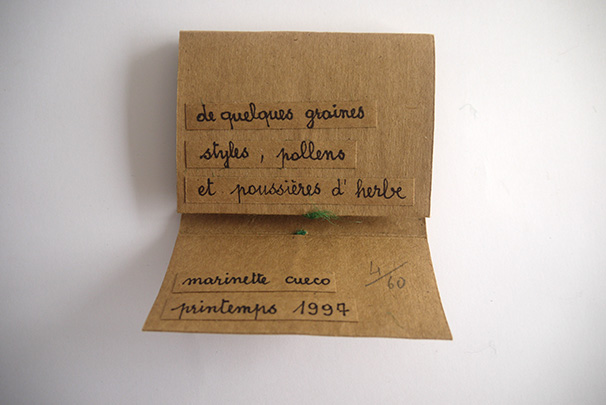 de quelques graines
styles, pollens
et poussières d'herbe
marinette cueco
4/60
printemps 1997